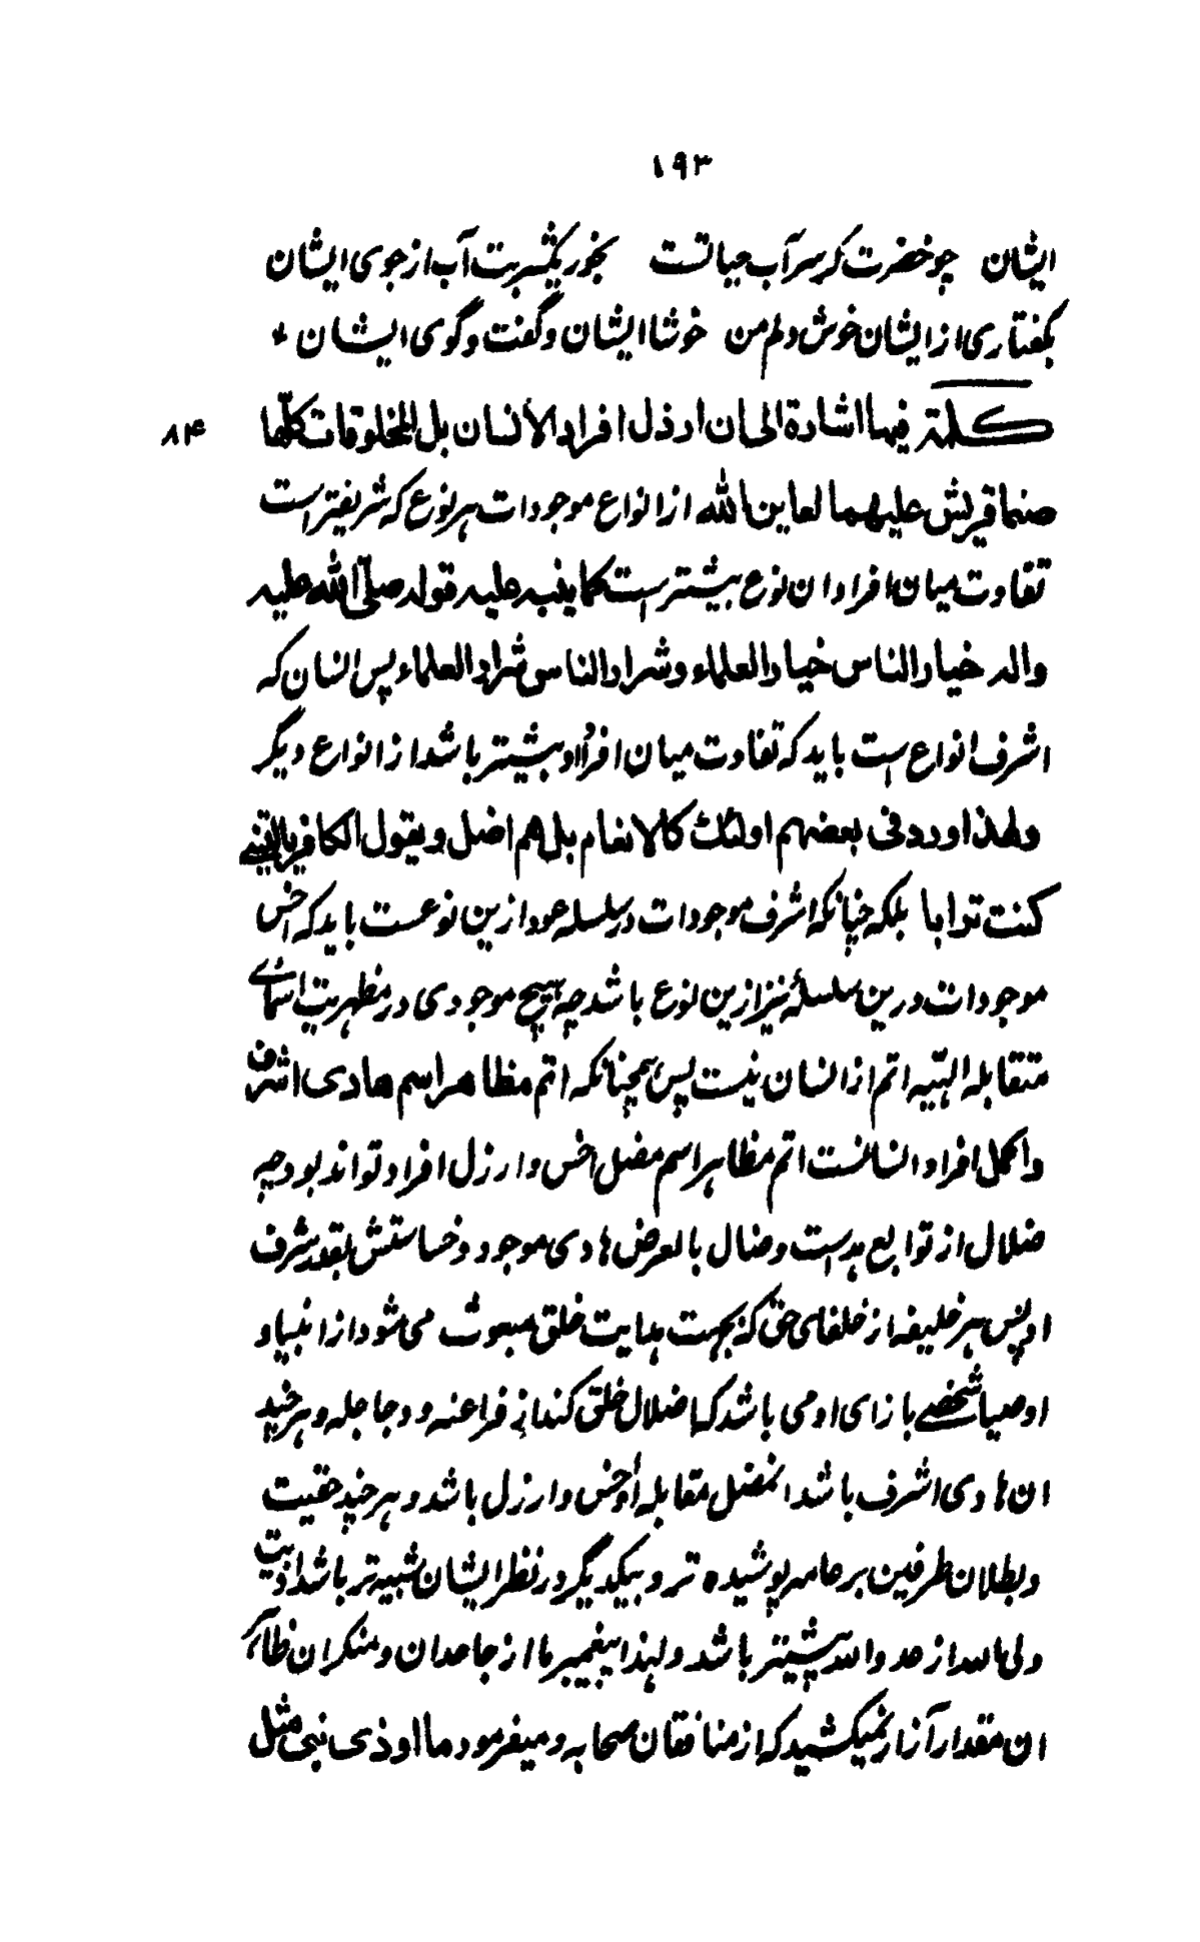 ۱۹۳
ایشان چو خضرت گر سر آب حیاتست بخور یکشربت آب از جوی ایشان
بگفتاری از ایشان خوش دلم من خوشا ایشان و گفت و گوی ایشان
۸۴ کلمة فیها اشارة الی ان ارذل افراد الأنسان بل المخلوقات کلّها
صنما قریش علیهما لعاین الله از انواع موجودات هر نوع که شریفتر است
تفاوت میان افراد ان نوع بیشتر است کما ینبه علیه قوله صلّی الله علیه
واله خیار الناس خیار العلماء و شرار الناس شرار العلماء پس انسان که
اشرف انواع است باید که تفاوت میان افراد او بیشتر باشد از انواع دیگر
ولهذا ورد فی بعضهم اولئک کالانعام بل هم اضل و یقول الکافر یا لیتنی
کنت ترابا بلکه چنانکه اشرف موجودات در سلسله عود ازین نوعست باید که اخس
موجودات درین سلسله نیز ازین نوع باشد چه هیچ موجودی در مظهریت اسمای
متقابله الهیّه اتم از انسان نیست پس همچنانکه اتم مظاهر اسم هادی اشرف
و اکمل افراد انسانست اتم مظاهر اسم مضل اخس و ارزل افراد تواند بود چه
ضلال از توابع هداست و ضال بالعرض هادی موجود و خساستش بقدر شرف
او پس هر خلیفه از خلفای حق که بجهت هدایت خلق مبعوث می شود از انبیا و
اوصیا شخصے بازای او می باشد که اضلال خلق کند از فراعنه و دجاجله و هر چند
ان هادی اشرف باشد ان مضل مقابله او اخس و ارزل باشد و هر چند حقیت
و بطلان طرفین بر عامه پوشیده تر و بیکدیگر در نظر ایشان شبیه تر باشد اذیت
ولی الله از عدو الله بیشتر باشد و لهذا پیغمبر ما از جاحدان و منکران ظاهر
ان مقدار آزار نمیکشید که از منافقان صحابه و میفرمود ما اوذی نبی مثل